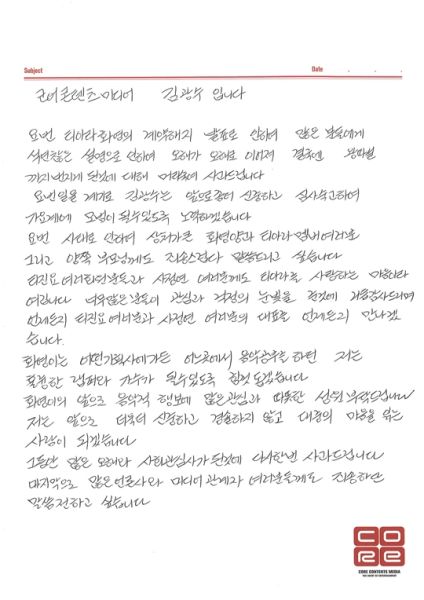 Subject
Date . . .
코어콘텐츠미디어 김광수 입니다
요번 티아라화영의 계약해지 발표로 인하여 많은 분들에게
석연찮은 설명으로 인하여 오해가 오해로 이어져
까지 번지게 된것에 대해 머리숙여 사과드립니다
요번일을 계기로 김광수는 앞으로좀더 신중하고 심사숙고하여
가요계에 모범이 될수있도록 노력하겠습니다
요번 사태로 인하여 상처가큰 화영양과 티아라멤버여러분
그리고 양쪽 부모님께도 죄송스럽다 말씀드리고 싶습니다
티진요여러분들과 사정연 여러분께도 티아라를 사랑하는 마음이라
여깁니다 더욱많은분들이 관심과 걱정의 눈빛을 준것에 가름감사드리며
언제든지 티진요여러분과 사정연 여러분의 대표를 언제든지 만나겠
습니다.
화영이는 어떤기획사에가든 어느곳에서 음악공부를 하던 저는
훌륭한 랩퍼와 가수가 될수있도록 힘껏 돕겠습니다
화영이의 앞으로 음악적 행보에 많은관심과 따뜻한 성원 부탁드립니다
저는 앞으로 더욱더 신중하고 경솔하지 않고 대중의 마음을 읽는
사람이 되겠습니다
그동안 많은 오해와 사회관심사가 된것에 다시한번 사과드립니다
마지막으로 많은언론사와 미디어 관계자 여러분들께도 죄송하단
말씀전하고 싶습니다
CORE
CORE CONTENTS MEDIA